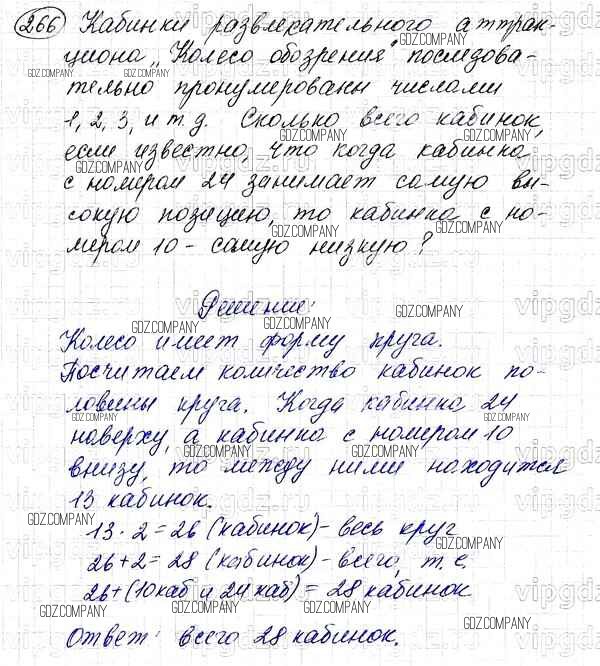 266 Кабинки развлекательного аттрак-
циона „Колесо обозрения" последова-
тельно пронумерованы числами
1, 2, 3, и т.д. Сколько всего кабинок,
если известно, что когда кабинка
с номером 24 занимает самую вы-
сокую позицию, то кабинка с но-
мером 10 - самую низкую?
Решение:
Колесо имеет форму круга.
Посчитаем количество кабинок по-
ловины круга. Когда кабинка 24
наверху, а кабинка с номером 10
внизу, то между ними находится
13 кабинок.
13 · 2 = 26 (кабинок) - весь круг
26 + 2 = 28 (кабинок) - всего, т. е.
26 + (10 каб и 24 каб) = 28 кабинок
Ответ: всего 28 кабинок.
GDZ.COMPANY
vipgdz.ru